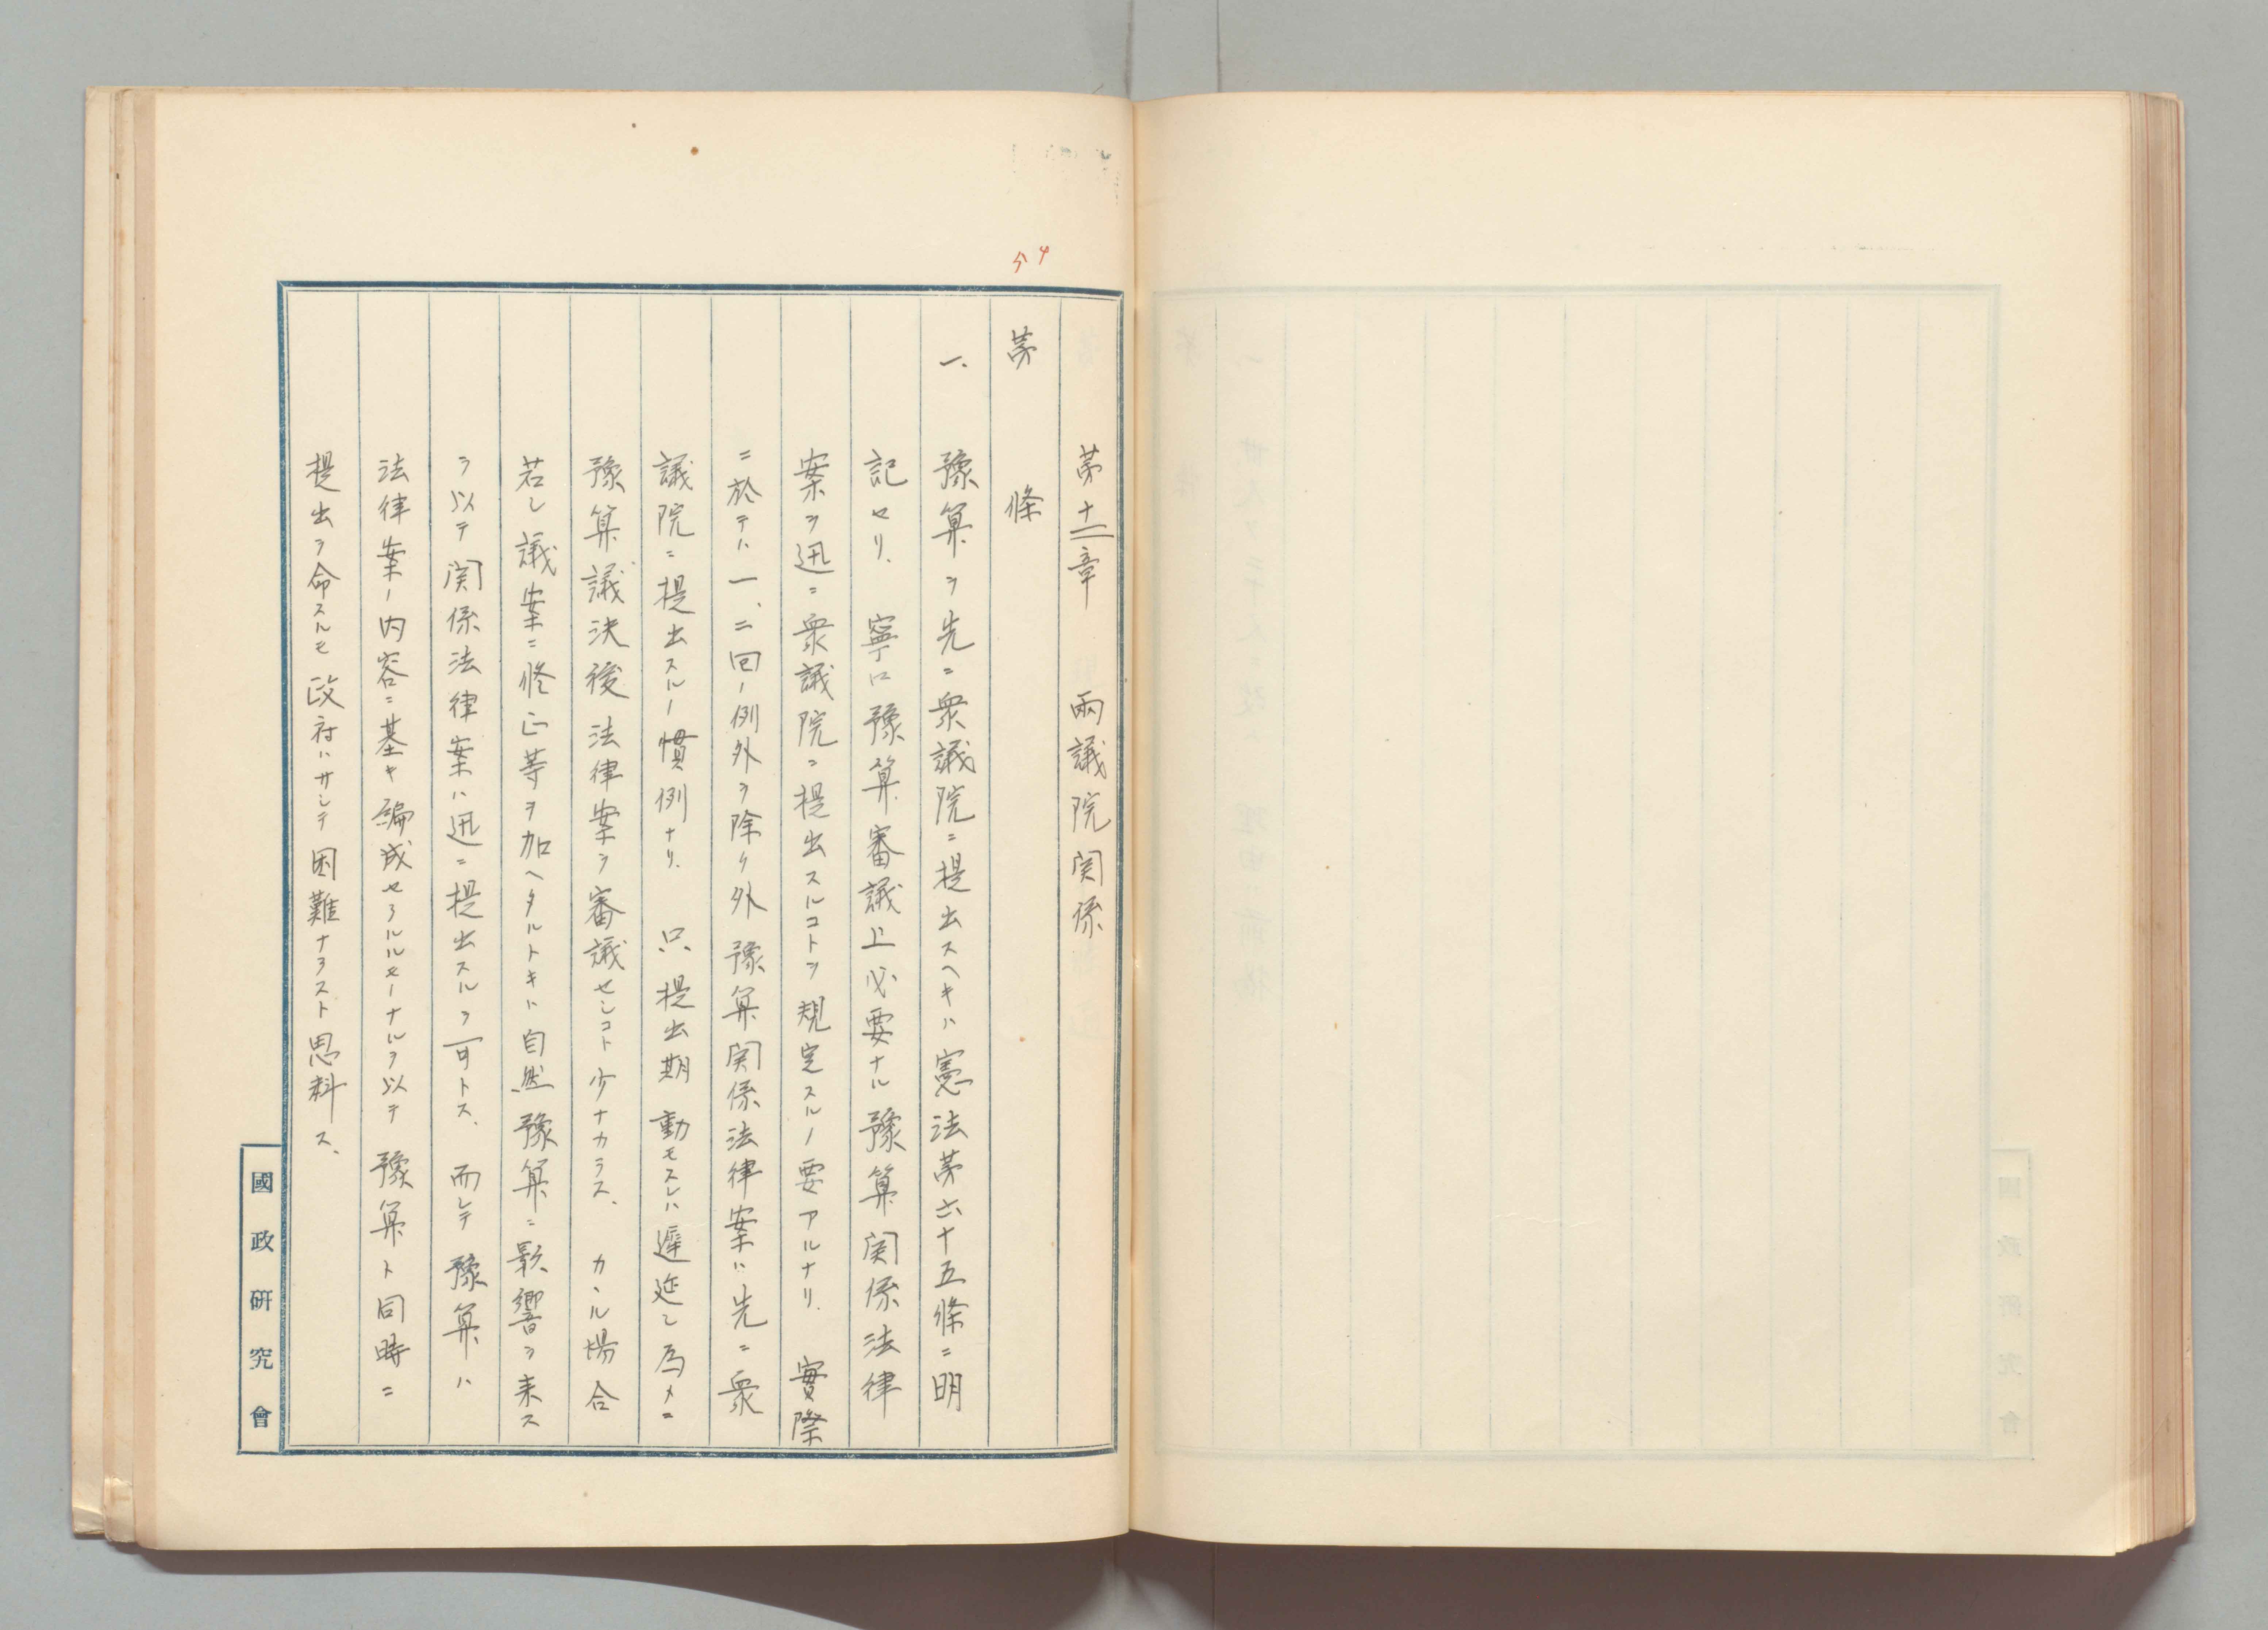 54
第十二章　兩議院関係
第　　條
一、豫算ヲ先ニ衆議院ニ提出スヘキハ憲法第六十五條ニ明
記セリ、寧ロ豫算審議上必要ナル豫算関係法律
案ヲ迅ニ衆議院ニ提出スルコトヲ規定スルノ要アルナリ、實際
ニ於テハ一、二回ノ例外ヲ除ク外豫算関係法律案ハ先ニ衆
議院ニ提出スルノ慣例ナリ、只、提出期動モスレハ遲延シ為メニ
豫算議決後法律案ヲ審議セシコト少ナカラス、カヽル場合
若シ議案ニ修正等ヲ加ヘタルトキハ自然豫算ニ影響ヲ来ス
ヲ以テ関係法律案ハ迅ニ提出スルヲ可トス、而シテ豫算ハ
法律案ノ内容ニ基キ編成セラルルモノナルヲ以テ豫算ト同時ニ
提出ヲ命スルモ政府ハサシテ困難ナラスト思料ス、
國政研究會